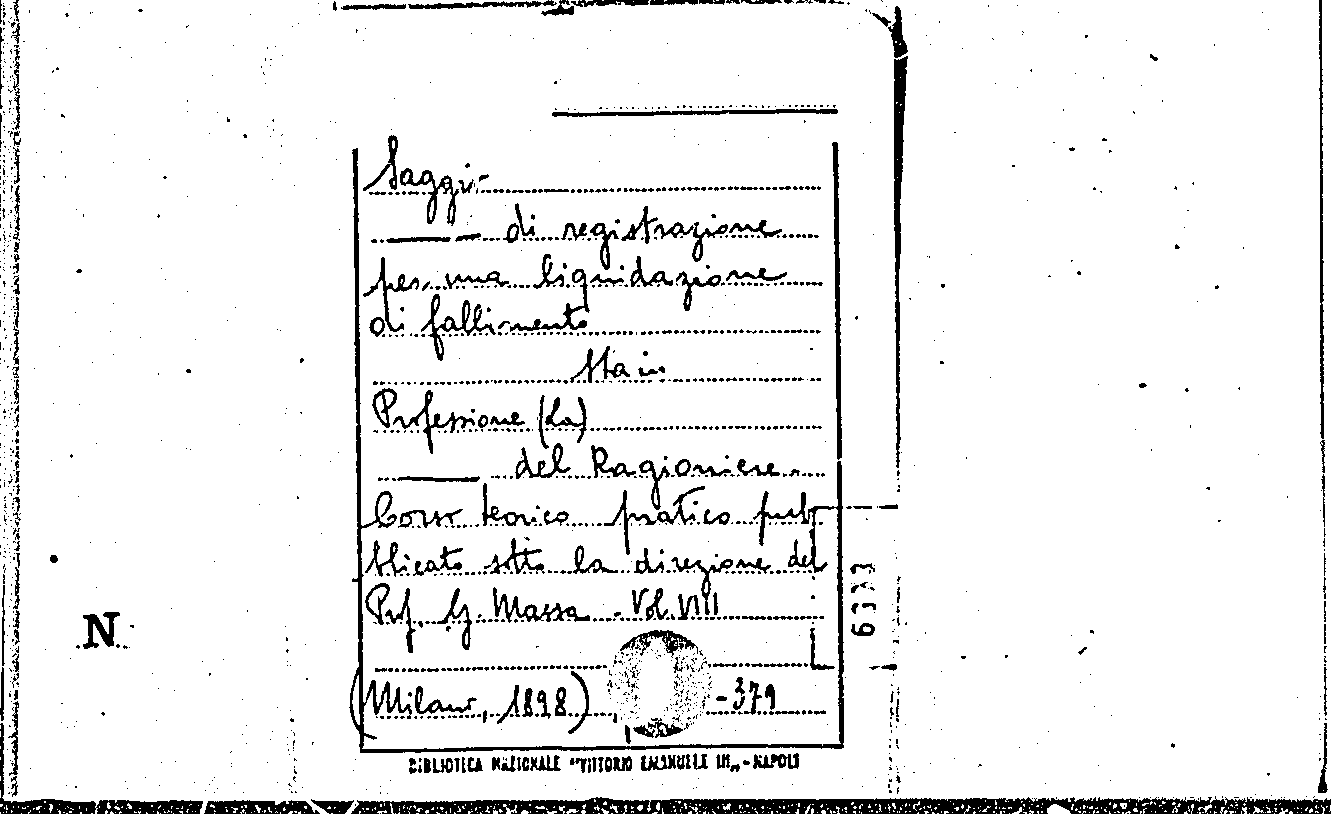 Saggi-
di registrazione
per una liquidazione
di fallimento
Sta in
Professione (La)
del Ragioniere.
Corso teorico pratico pub
blicato sotto la direzione del
Prof. G. Massa - Vol. VIII
(Milano, 1898) -379
BIBLIOTECA NAZIONALE "VITTORIO EMANUELE III„ - NAPOLI
N